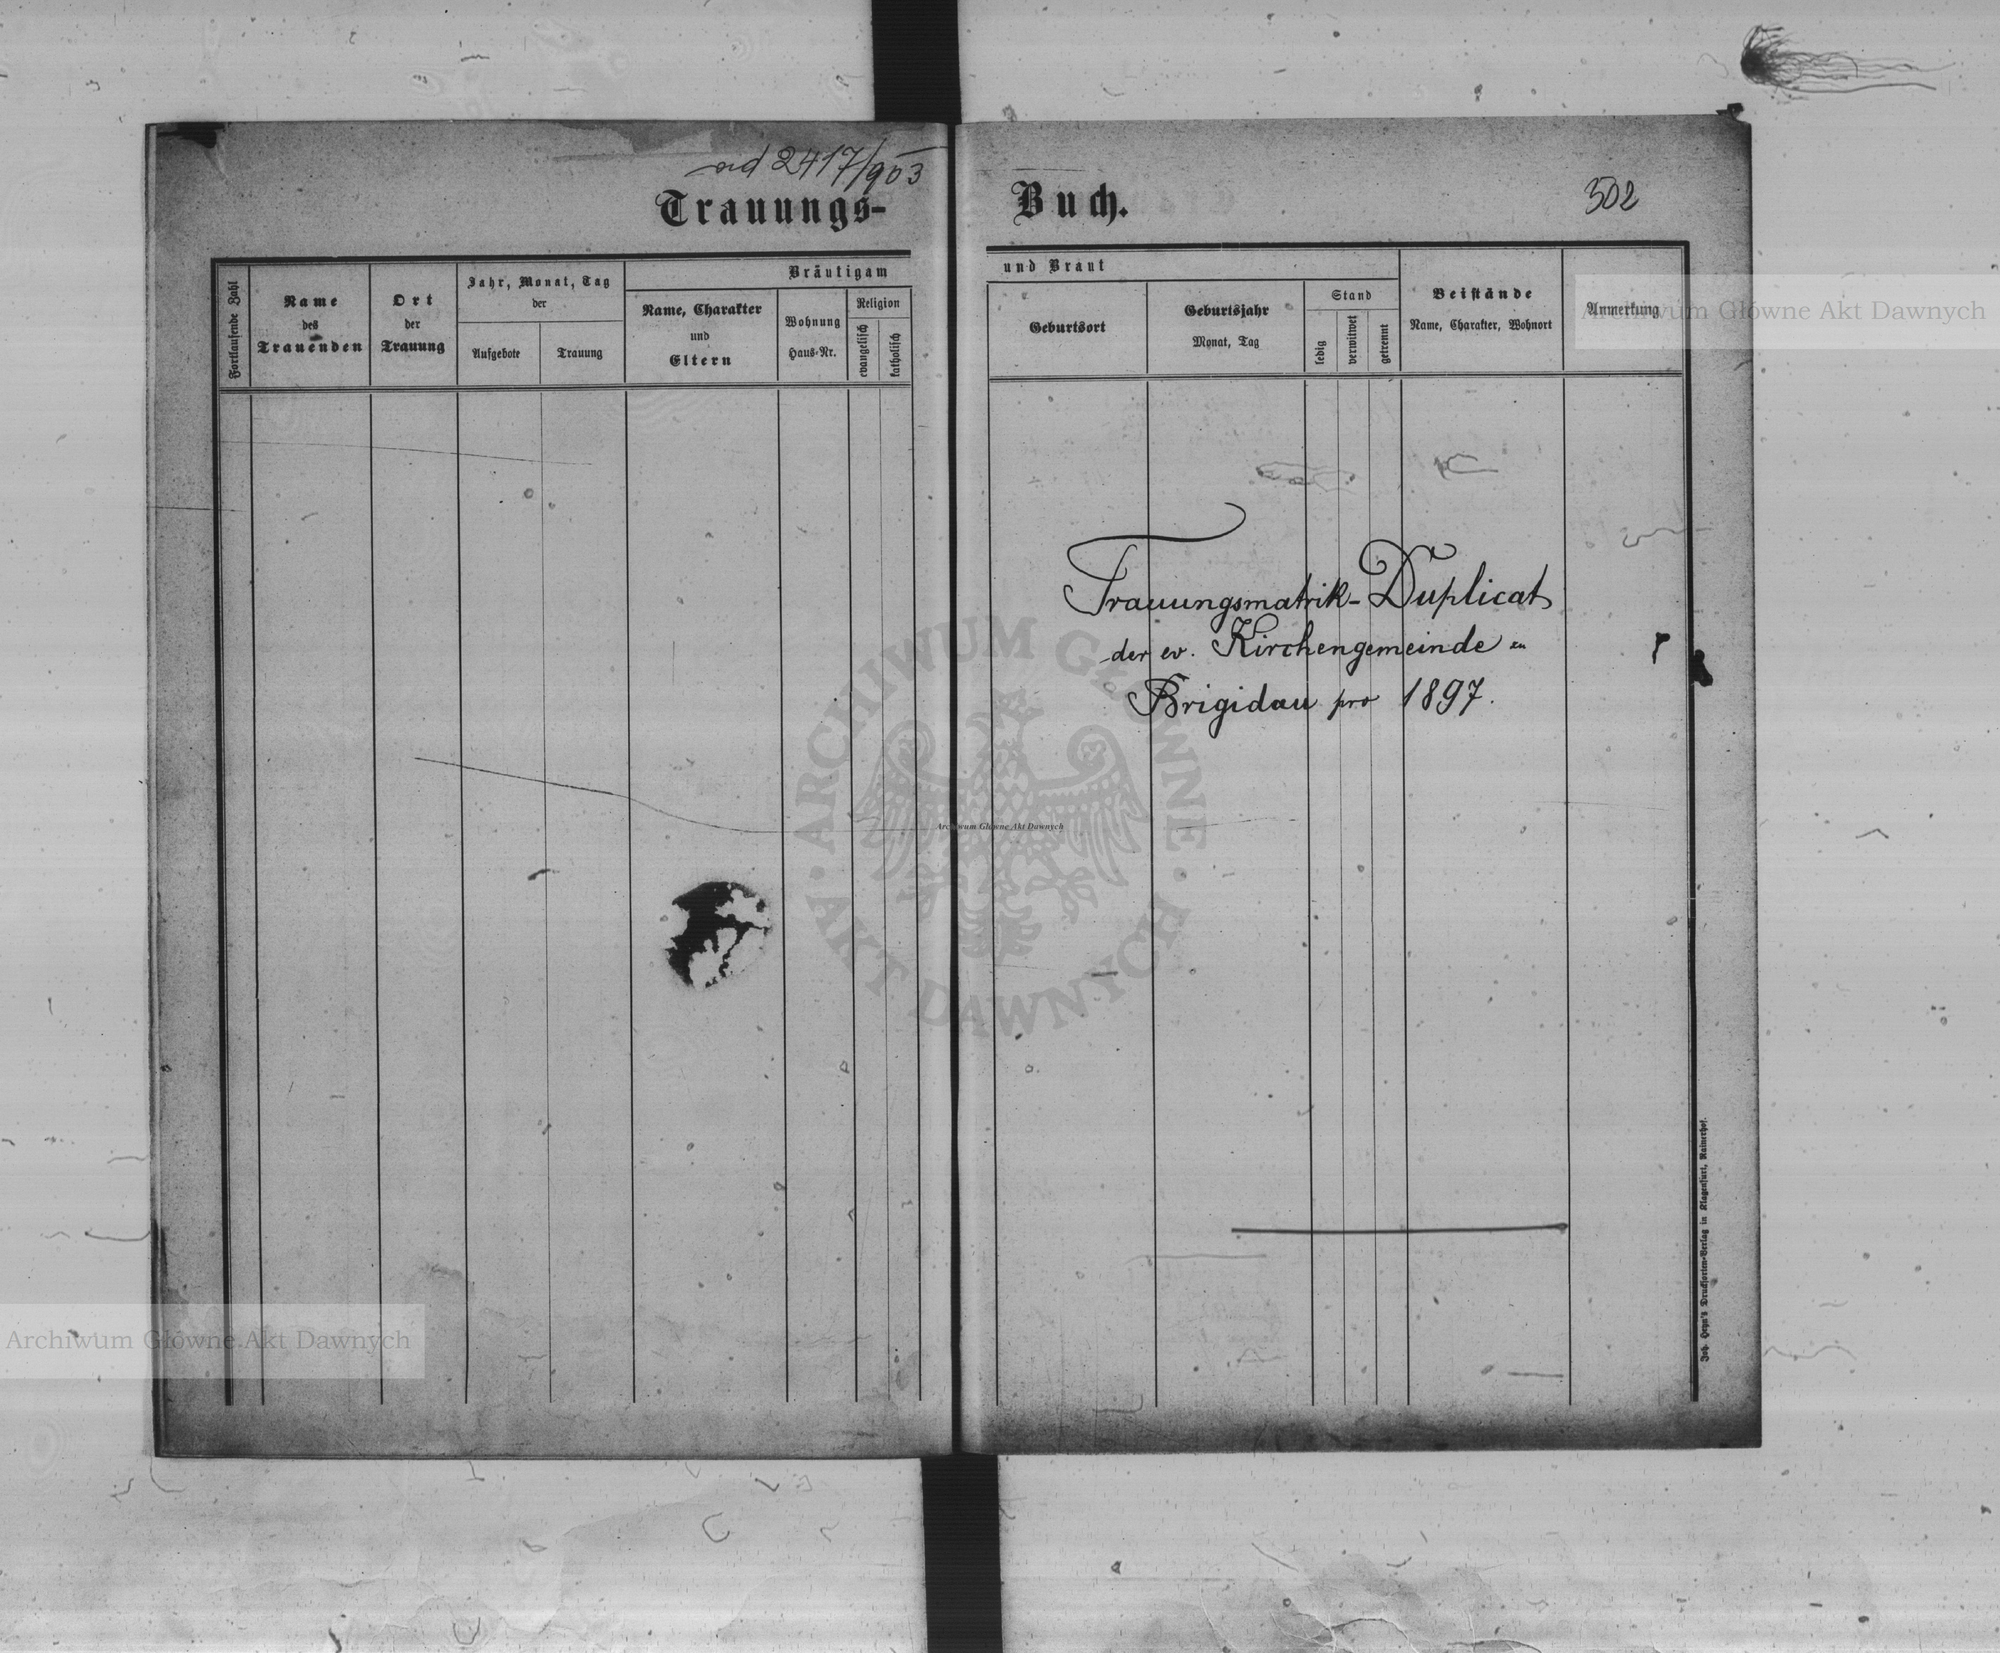 ad 2417/903
Trauungs-
Buch.
502
Fortlaufende Zahl
Name
des
Trauenden
Ort
der
Trauung
Jahr, Monat, Tag
der
Aufgebote
Trauung
Bräutigam
Name, Charakter
und
Eltern
Wohnung
Haus-Nr.
Religion
evangelisch
katholisch
und Braut
Geburtsort
Geburtsjahr
Monat, Tag
Stand
ledig
verwitwet
getrennt
Beistände
Name, Charakter, Wohnort
Anmerkung
Archiwum Główne Akt Dawnych
Trauungsmatrik-Duplicat
der ev. Kirchengemeinde zu
Brigidau pro 1897.
ARCHIWUM GŁÓWNE
AKT DAWNYCH
Archiwum Główne Akt Dawnych
Archiwum Główne Akt Dawnych
Joh. Heyn's Drucksorten-Verlag in Klagenfurt, Rainerhof.